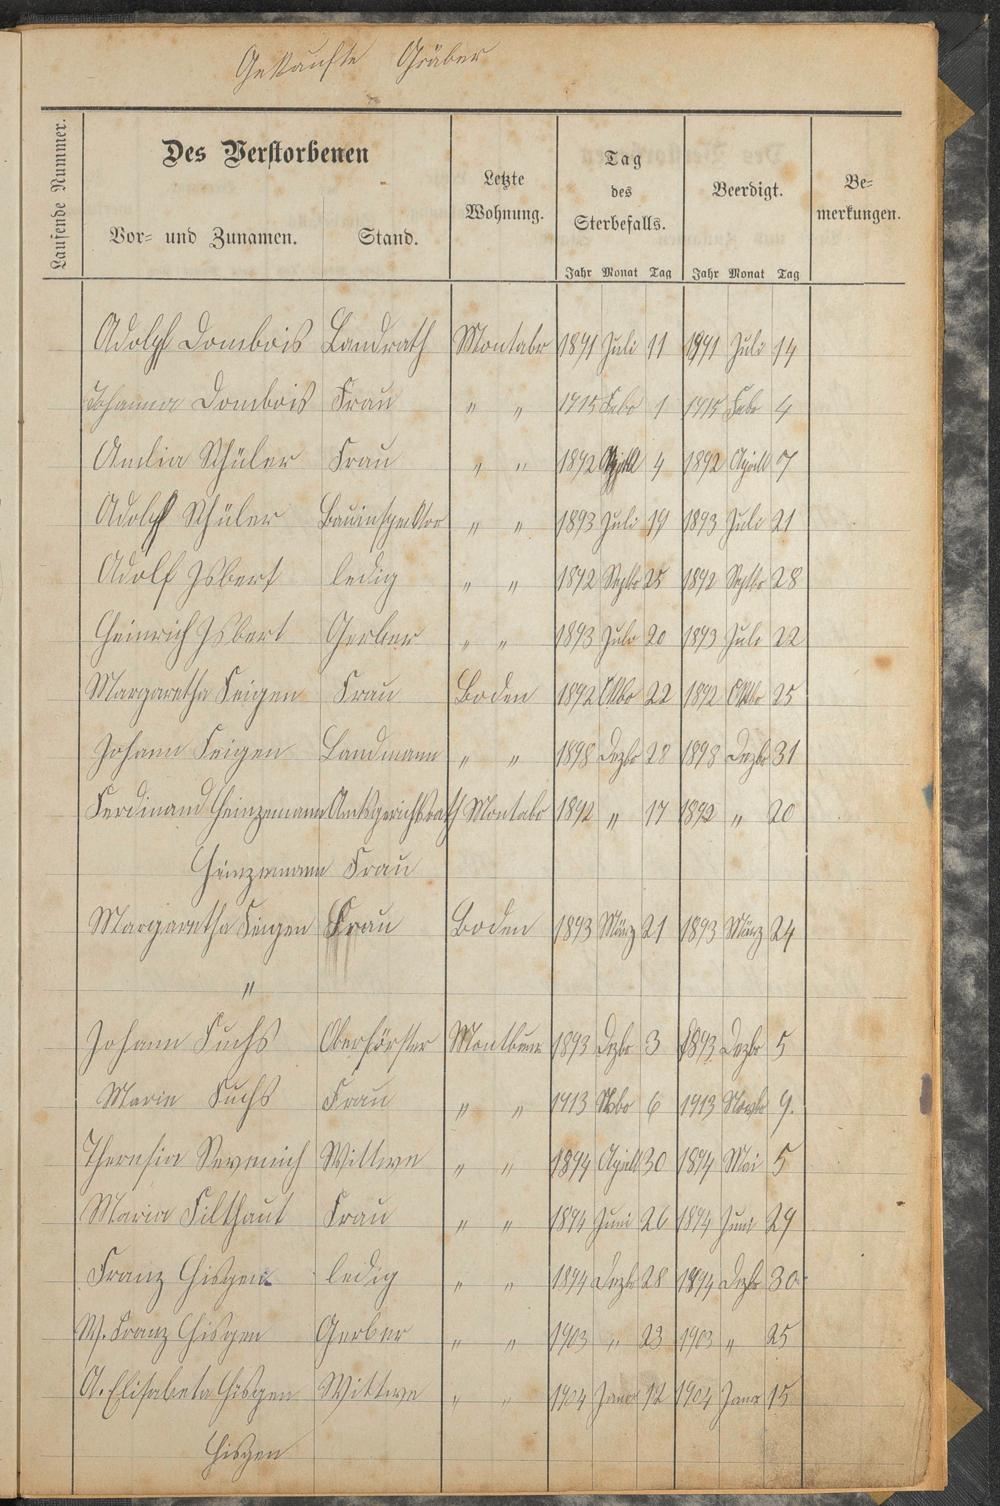 Gekaufte Gräber
Laufende Nummer.
Des Verstorbenen
Vor- und Zunamen.
Stand.
Letzte
Wohnung.
Tag
des
Sterbefalls.
Jahr Monat Tag
Beerdigt.
Jahr Monat Tag
Be-
merkungen.
Adolf Dombois Landrath Montabr 1891 Juli 11 1891 Juli 14
Johanna Dombois Frau " " 1915 Febr 1 1915 Febr 4
Amlia Schüler Frau " " 1892 April 4 1892 April 7
Adolf Schüler Bauinspecktor " " 1893 Juli 19 1893 Juli 21
Adolf Isbert ledig " " 1892 Septbr 25 1892 Septbr 28
Heinrich Isbert Gerber " " 1893 Juli 20 1893 Juli 22
Margaretha Feigen Frau Boden 1892 Oktbr 22 1892 Oktbr 25
Johann Feigen Landmann " " 1898 Dezbr 28 1898 Dezbr 31
Ferdinand Heinzemann Amtsgerichtsrath Montabr 1892 " 17 1892 " 20
Heinzemann Frau
Margaretha Feigen Frau Boden 1893 März 21 1893 März 24
"
Johann Fuchs Oberförster 1893 Dezbr 3 1893 Dezbr 5
Marie Fuchs Frau " " 1913 Novbr 6 1913 Novbr 9.
Theresia Sevenich Wittwe " " 1894 April 30 1894 Mai 5
Maria Filthaut Frau " " 1894 Juni 26 1894 Juni 29
Franz Hisgen ledig " " 1894 Dezbr 28 1894 Dezbr 30
W. Franz Hisgen Gerber " " 1903 " 23 1903 " 25
A. Elisabeta Hisgen Wittwe " " 1904 Janr 12 1904 Janr 15
Hisgen